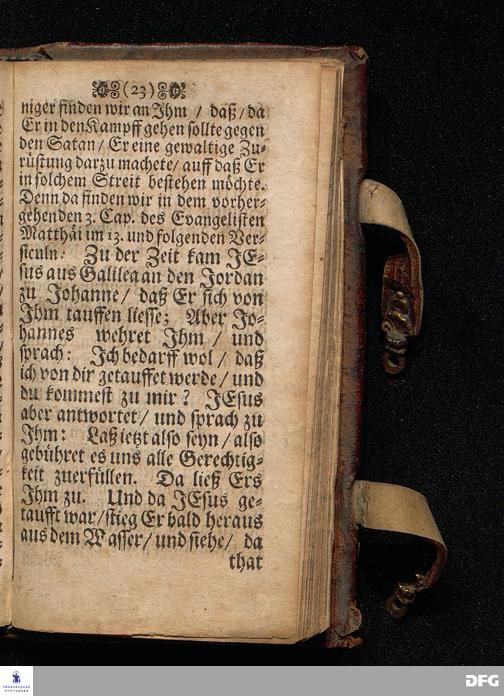 (23)
niger finden wir an Ihm / daß / da
Er in den Kampff gehen sollte gegen
den Satan / Er eine gewaltige Zu-
rüstung darzu machete / auff daß Er
in solchem Streit bestehen möchte.
Denn da finden wir in dem vorher-
gehenden 3. Cap. des Evangelisten
Matthäi im 13. und folgenden Ver-
siculn: Zu der Zeit kam JE-
sus aus Galilea an den Jordan
zu Johanne / daß Er sich von
Ihm tauffen liesse; Aber Jo-
hannes wehret Ihm / und
sprach: Ich bedarff wol / daß
ich von dir getauffet werde / und
du kommest zu mir? JEsus
aber antwortet / und sprach zu
Ihm: Laß ietzt also seyn / also
gebühret es uns alle Gerechtig-
keit zuerfüllen. Da ließ Ers
Ihm zu. Und da JEsus ge-
taufft war / stieg Er bald heraus
aus dem Wasser / und siehe / da
that
FRANCKESCHE
STIFTUNGEN
DFG